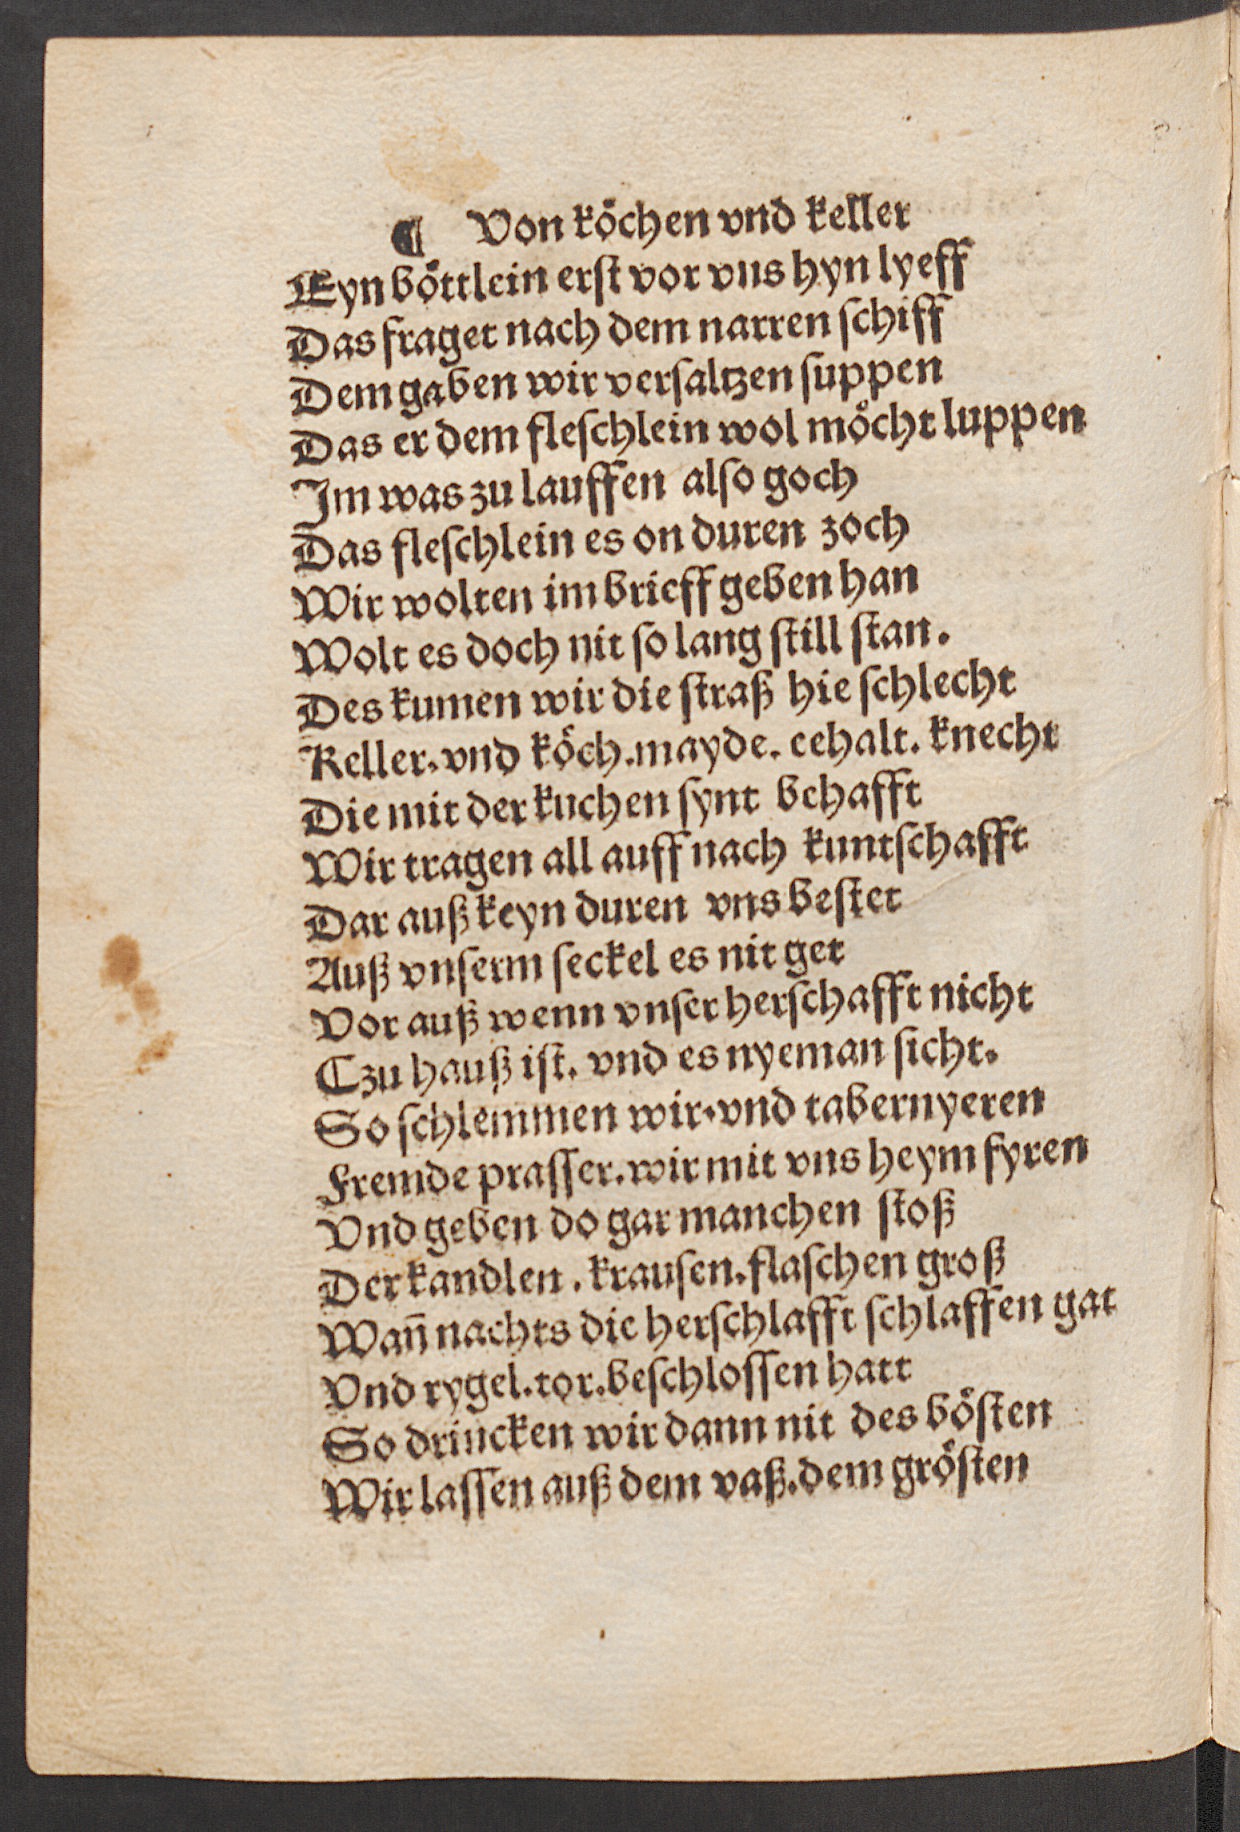 ¶ Von köchen vnd keller
Eyn böttlein erst vor vns hyn lyeff
Das fraget nach dem narren schiff
Dem gaben wir versaltzen suppen
Das er dem fleschlein wol möcht luppen
Im was zu lauffen also goch
Das fleschlein es on duren zoch
Wir wolten im brieff geben han
Wolt es doch nit so lang still stan.
Des kumen wir die straß hie schlecht
Keller. vnd köch. mayde. eehalt. knecht
Die mit der kuchen synt behafft
Wir tragen all auff nach kuntschafft
Dar auß keyn duren vns bestet
Auß vnserm seckel es nit get
Vor auß wenn vnser herschafft nicht
Czu hauß ist. vnd es nyeman sicht.
So schlemmen wir. vnd tabernyeren
Fremde prasser. wir mit vns heym fyren
Vnd geben do gar manchen stoß
Der kandlen. krausen. flaschen groß
Wañ nachts die herschlafft schlaffen gat
Vnd rygel. tor. beschlossen hatt
So drincken wir dann nit des bösten
Wir lassen auß dem vaß. dem grösten